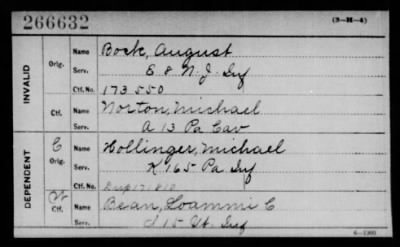 266632
(3—H—4)
INVALID
Orig.
Name Bock, August
Serv. E 8 N. J. Inf
Ctf. No. 173550
Ctf.
Name Norton, Michael
Serv. A 13 Pa Cav
DEPENDENT
C
Orig.
Name Hollinger, Michael
Serv. K 165 Pa Inf
Ctf. No.
Ctf.
Name Bean, Loammi C
Serv. I 15 Inf
6—1360